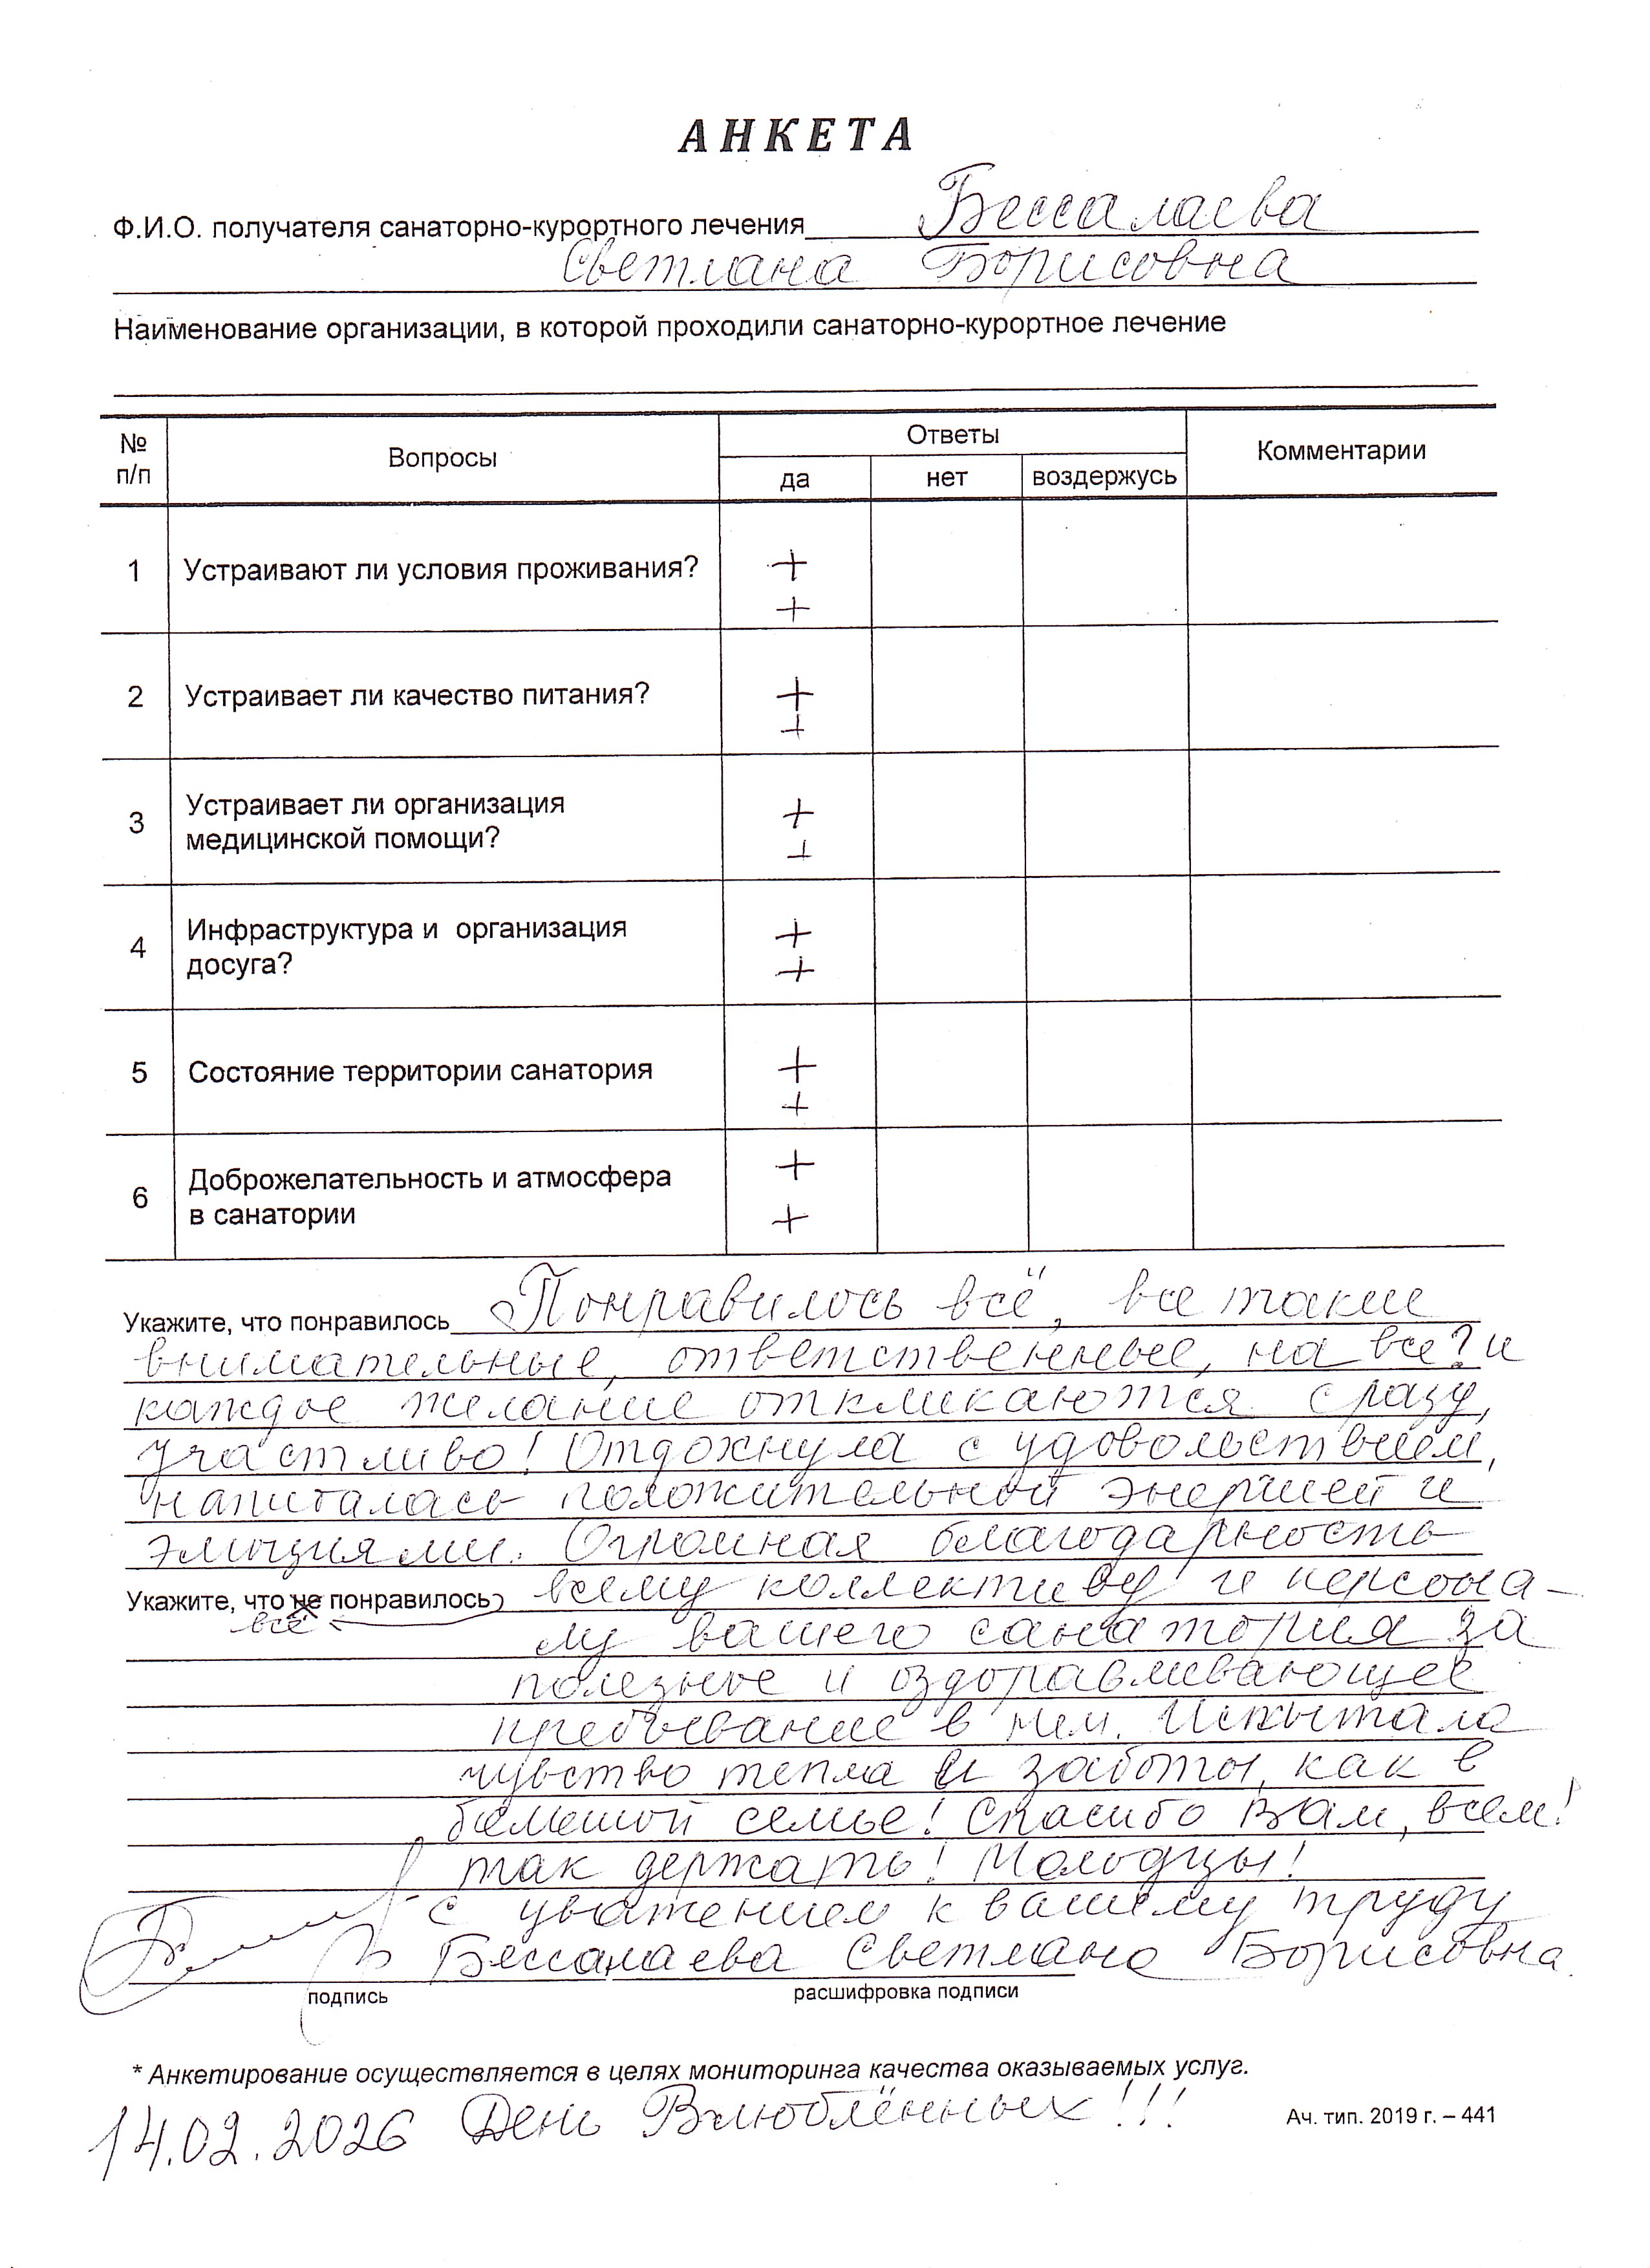 АНКЕТА
Ф.И.О. получателя санаторно-курортного лечения Бессалаева
Светлана Борисовна
Наименование организации, в которой проходили санаторно-курортное лечение
№ п/п Вопросы Ответы Комментарии
да нет воздержусь
1 Устраивают ли условия проживания? +
+
2 Устраивает ли качество питания? +
+
3 Устраивает ли организация +
медицинской помощи? +
4 Инфраструктура и организация +
досуга? +
5 Состояние территории санатория +
+
6 Доброжелательность и атмосфера +
в санатории +
Укажите, что понравилось Понравилось всё, все такие
внимательные, ответственные, на все? и
каждое желание откликаются сразу,
участливо! Отдохнула с удовольствием,
напиталась положительной энергией и
эмоциями. Огромная благодарность
Укажите, что не понравилось всему коллективу и персона-
всё
лу вашего санатория за
полезное и оздоравливающее
пребывание в нем. Испытала
чувство тепла и заботы, как в
большой семье! Спасибо Вам, всем!
так держать! Молодцы!
С уважением к вашему труду
Бессалаева Светлана Борисовна.
подпись расшифровка подписи
* Анкетирование осуществляется в целях мониторинга качества оказываемых услуг.
14.02.2026 День Влюблённых!!!
Ач. тип. 2019 г. – 441